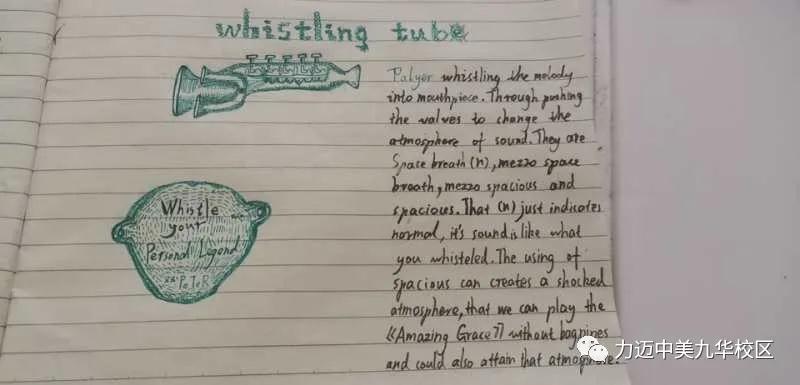 whistling tube
Palyer whistling the melody
into mouthpiece. Through pushing
the valves to change the
atmosphere of sound. They are
Space breath (n), mezzo space
breath, mezzo spacious and
spacious. That (n) just indicates
normal, it's sound is like what
you whisteled. The using of
spacious can creates a shocked
atmosphere, that we can play the
《Amazing Grace》 without bagpipes
and could also attain that atmosphere.
Whistle
your
Personal Legend
PeTeR
力迈中美九华校区